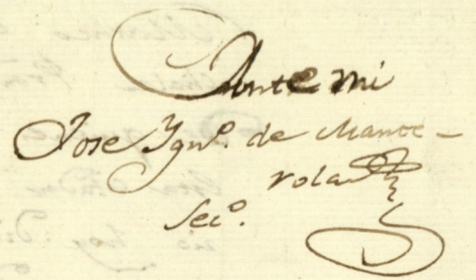 Ante mi
Jose Ygn.o de Mante-
rola
Sec.o